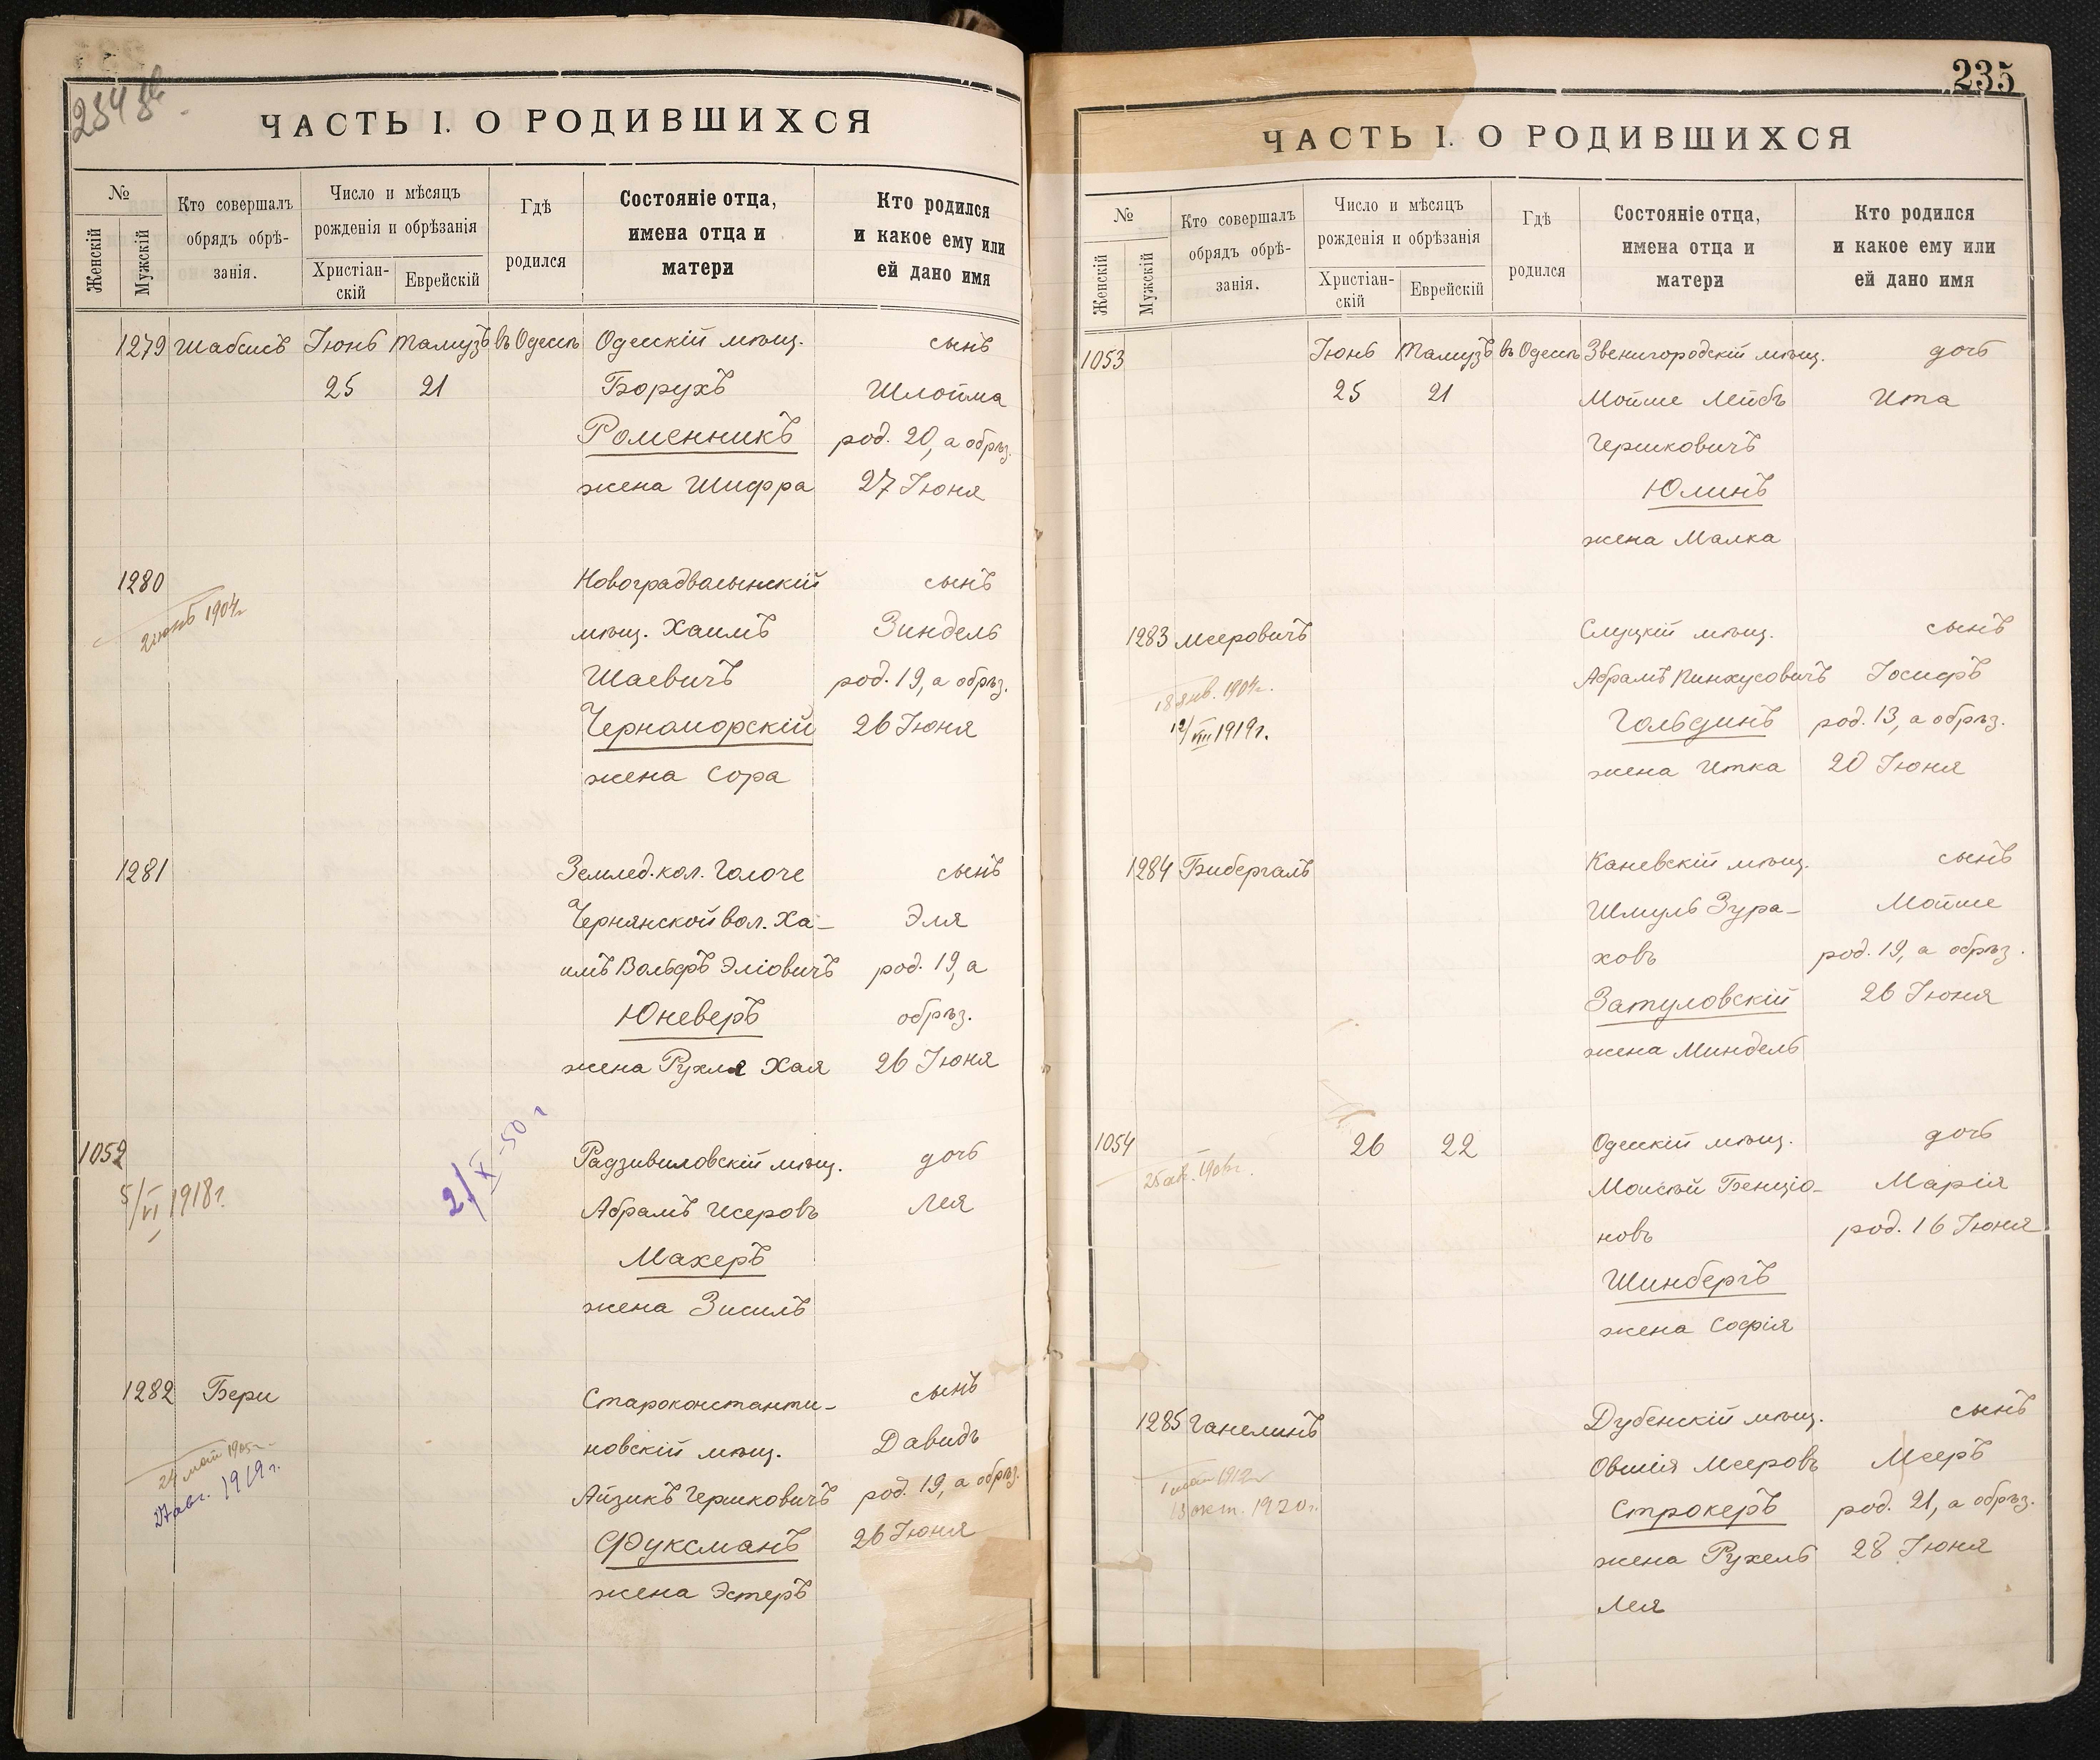 ЧАСТЬ I. О РОДИВШИХСЯ
№
Женскій
Мужскій
Кто совершалъ
обрядъ обрѣ-
занія.
Число и мѣсяцъ
рожденія и обрѣзанія
Христіан-
скій
Еврейскій
Гдѣ
родился
Состояніе отца,
имена отца и
матери
Кто родился
и какое ему или
ей дано имя
1279 Шабсисъ Іюнь Тамузъ въ Одессѣ Одесскій мѣщ. сынъ
25 21 Борухъ Шлойма
Роменникъ род. 20, а обрѣз.
жена Шифра 27 Іюня
1280 Новоградволынскій сынъ
2 іюнь 1904 г. мѣщ. Хаимъ Зиндель
Шаевичъ род. 19, а обрѣз.
Черноморскій 26 Іюня
жена Сора
1281 Землед. кол. сынъ
Чернянской вол. Ха- Эля
имъ Вольфъ Эліовичъ род. 19, а
Юневеръ обрѣз.
жена Рухля Хая 26 Іюня
1052 Радзивиловскій мѣщ. дочь
5/VI 1918 г. 2/X-50 г Абрамъ Исеровъ Лея
Махеръ
жена Зисиль
1282 Бери Староконстанти- сынъ
новскій мѣщ. Давидъ
24 май 1905 г. Айзикъ Гершковичъ род. 19, а обрѣз.
27 авг. 1919 г. Фуксманъ 26 Іюня
жена Эстеръ
235
ЧАСТЬ I. О РОДИВШИХСЯ
№
Женскій
Мужскій
Кто совершалъ
обрядъ обрѣ-
занія.
Число и мѣсяцъ
рожденія и обрѣзанія
Христіан-
скій
Еврейскій
Гдѣ
родился
Состояніе отца,
имена отца и
матери
Кто родился
и какое ему или
ей дано имя
1053 Іюнь Тамузъ въ Одессѣ Звенигородскій мѣщ. дочь
25 21 Мойше Лейбъ Ита
Гершковичъ
Юлинъ
жена Малка
1283 Мееровичъ Слуцкій мѣщ. сынъ
18 янв. 1904 г. Абрамъ Пинхусовичъ Іосифъ
12/VIII 1919 г. Гольдинъ род. 13, а обрѣз.
жена Итка 20 Іюня
1284 Бибергалъ Каневскій мѣщ. сынъ
Шмуль Зура- Мойше
ховъ род. 19, а обрѣз.
Затуловскій 26 Іюня
жена Миндель
1054 26 22 Одесскій мѣщ. дочь
Моисей Бенціо- Марія
новъ род. 16 Іюня
Шинбергъ
жена Софія
1285 Ганелинъ Дубенскій мѣщ. сынъ
Овшія Мееровъ Мееръ
13 окт. 1920 г. Строкеръ род. 21, а обрѣз.
жена Рухель 28 Іюня
Лея